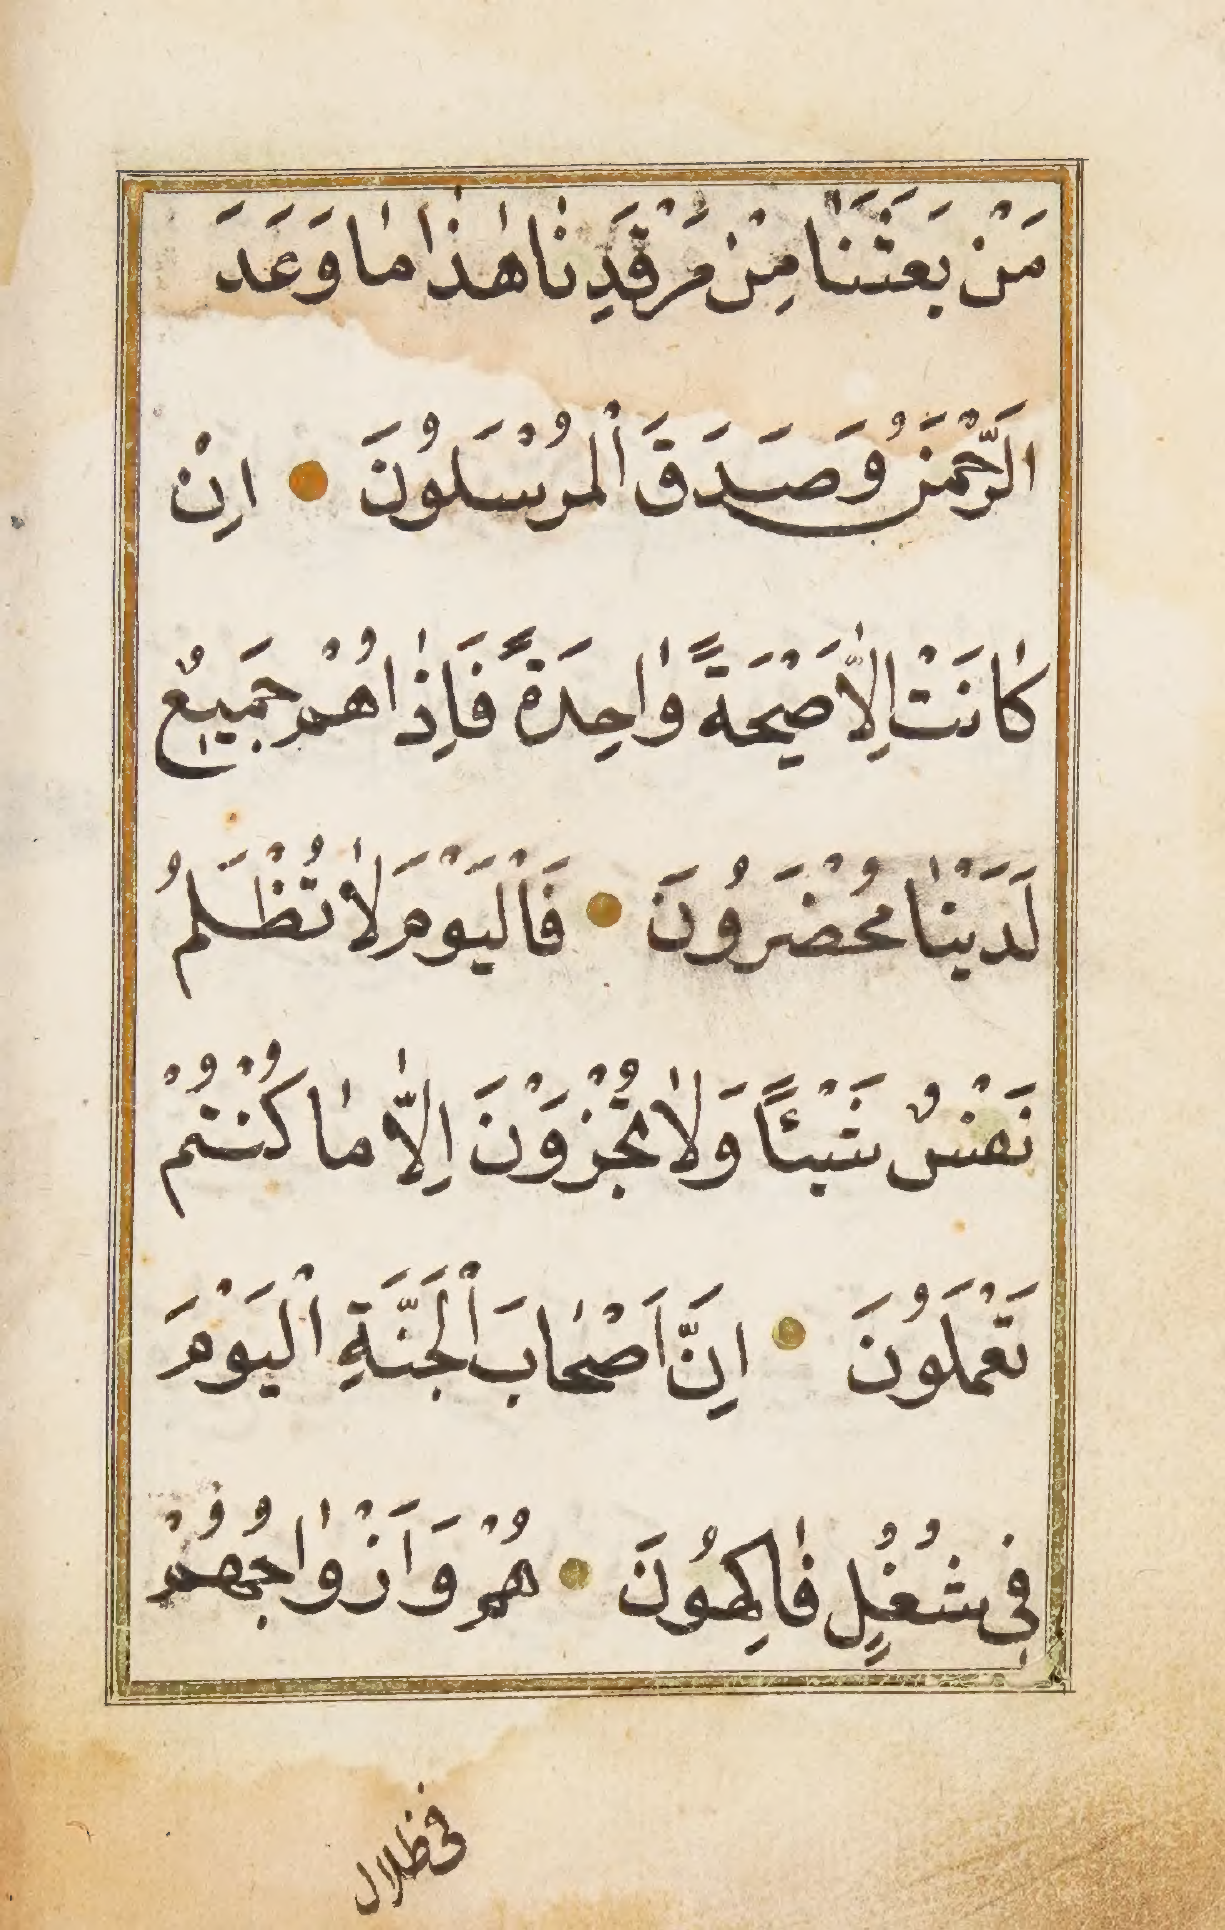 مَنْ بَعَثَنَا مِنْ مَرْقَدِنٰا هٰذٰا مٰا وَعَدَ
الرَّحْمَنُ وَصَدَقَ الْمُرْسَلُونَ ● اِنْ
كٰانَتْ اِلاّٰ صَيْحَةً وٰاحِدَةً فَاِذٰا هُمْ جَمِيعٌ
لَدَيْنٰا مُحْضَرُونَ ● فَالْيَوْمَ لاٰ تُظْلَمُ
نَفْسٌ شَيْئًا وَلاٰ تُجْزَوْنَ اِلاّٰ مٰا كُنْتُمْ
تَعْمَلُونَ ● اِنَّ اَصْحٰابَ الْجَنَّةِ الْيَوْمَ
فِى شُغُلٍ فٰاكِهُونَ ● هُمْ وَاَزْوٰاجُهُمْ
فى ظلال